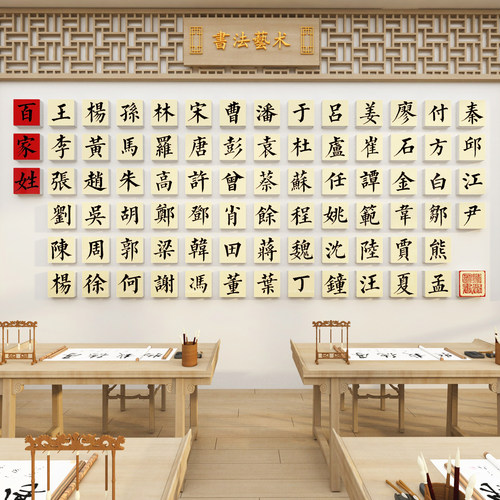 書法藝术
百王楊孫林宋曹潘于呂姜廖付秦
家李黃馬羅唐彭袁杜盧崔石方邱
姓張趙朱高許曾蔡蘇任譚金白江
劉吳胡鄭鄧肖餘程姚範韋鄒尹
陳周郭梁韓田蔣魏沈陸賈熊
楊徐何謝馮董葉丁鐘汪夏孟